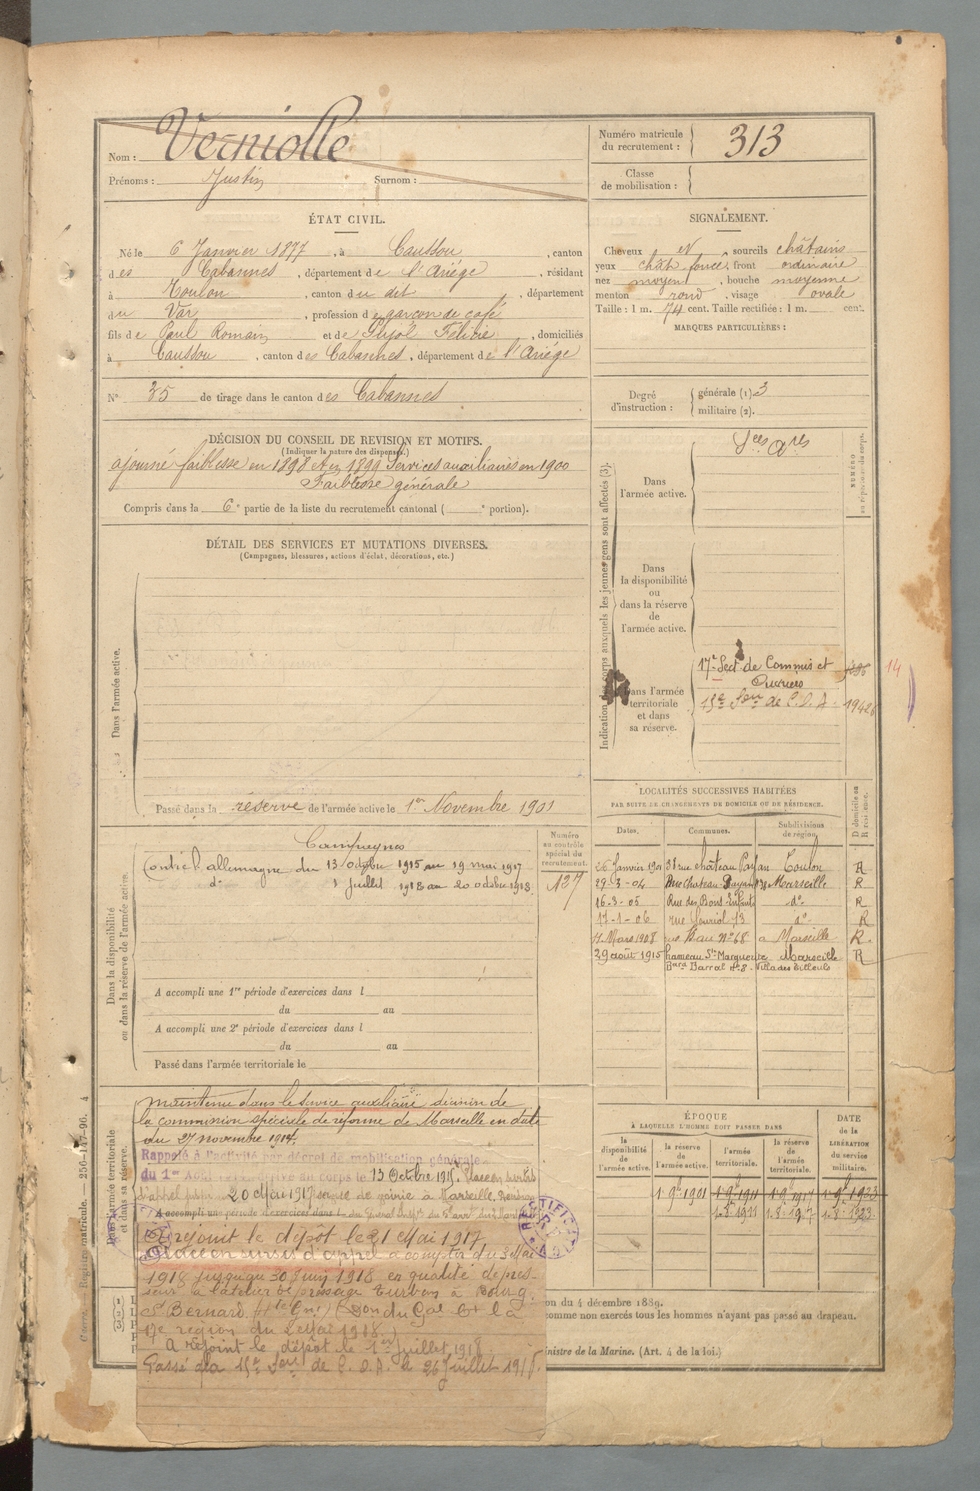 Nom : Verniolle
Prénoms : Justin Surnom :
Numéro matricule du recrutement : 313
Classe de mobilisation :
ÉTAT CIVIL.
Né le 6 Janvier 1877, à Caussou, canton
des Cabannes, département de l'Ariége, résidant
à Toulon, canton du dit, département
du Var, profession de garçon de café
fils de Paul Romain et de Pujol Félicie, domiciliés
à Caussou, canton des Cabannes, département de l'Ariége
N° 35 de tirage dans le canton des Cabannes
SIGNALEMENT.
Cheveux et, sourcils châtains
yeux chât foncé, front ordinaire
nez moyen, bouche moyenne
menton rond, visage ovale
Taille : 1 m. 74 cent. Taille rectifiée : 1 m. cent.
MARQUES PARTICULIÈRES :
Degré d'instruction : générale (1). 3
militaire (2).
DÉCISION DU CONSEIL DE REVISION ET MOTIFS.
(Indiquer la nature des dispenses.)
ajourné faiblesse en 1898 et en 1899 Services auxiliaires en 1900
Faiblesse générale
Compris dans la 6e partie de la liste du recrutement cantonal ( e portion).
DÉTAIL DES SERVICES ET MUTATIONS DIVERSES.
(Campagnes, blessures, actions d'éclat, décorations, etc.)
Dans l'armée active.
Passé dans la réserve de l'armée active le 1er Novembre 1901
Indication des corps auxquels les jeunes gens sont affectés (3).
NUMÉRO au répertoire du corps.
Dans l'armée active. Ses Ares
Dans la disponibilité ou dans la réserve de l'armée active.
Dans l'armée territoriale et dans sa réserve.
17e Sect de Commis et
Ouvriers
14
15e Son de C.O.A. 1942
LOCALITÉS SUCCESSIVES HABITÉES
PAR SUITE DE CHANGEMENTS DE DOMICILE OU DE RÉSIDENCE.
Dates. Communes. Subdivisions de région. D domicile ou R résidence.
26 Janvier 1901 31 rue château Payan Toulon R
29-3-04 Rue Chateau Payan 38 Marseille R
16-3-05 Rue des Bons Enfants do R
17-1-06 rue 73 do R
Mars 1908 rue n° 68 a Marseille R
29 août 1915 hameau Ste Marguerite Marseille R
Bard Barral n° 8 Villa des tilleuls
Dans la disponibilité ou dans la réserve de l'armée active.
Numéro au contrôle spécial du recrutement.
127
Campagnes
Contre l'allemagne du 13 octobre 1915 au 19 mai 1917
do 1 juillet 1918 au 20 octobre 1918
A accompli une 1re période d'exercices dans l
du au
A accompli une 2e période d'exercices dans l
du au
Passé dans l'armée territoriale le
Dans l'armée territoriale et dans sa réserve.
maintenu dans le service auxiliaire décision de
la commission spéciale de réforme de Marseille en date
du 27 novembre 1914.
Rappelé à l'activité par décret de mobilisation générale
du 1er Août Arrivé au corps le 13 Octobre 1915. Placé en sursis
d'appel 20 Mai 1917 de génie à Marseille,
A accompli une période d'exercices dans l
A rejoint le dépôt le 21 Mai 1917
Placé en sursis d'appel à compter du 3 Mai
1918 jusqu'au 30 Juin 1918 en qualité de pres-
seur à l'atelier de pressage Turban à Bourg
St Bernard (Hte Gne) (Don du Gal Ct la
17e région du 2 Mai 1918.)
A rejoint le dépôt le 1er juillet 1918.
Passé à la 15e Son de C.O.A. le 26 Juillet 1918.
RECTIFICATION
ÉPOQUE
À LAQUELLE L'HOMME DOIT PASSER DANS
la disponibilité de l'armée active. la réserve de l'armée active. l'armée territoriale. la réserve de l'armée territoriale.
DATE de la LIBÉRATION du service militaire.
1-9bre 1901 1-9bre 1911 1-9bre 1917 1-9bre 1923
1-8-1911 1-8-1917 1-8-1923
on du 4 décembre 1889.
comme non exercés tous les hommes n'ayant pas passé au drapeau.
inistre de la Marine. (Art. 4 de la loi.)
Guerre. — Registre matricule. 256-147-96. 4